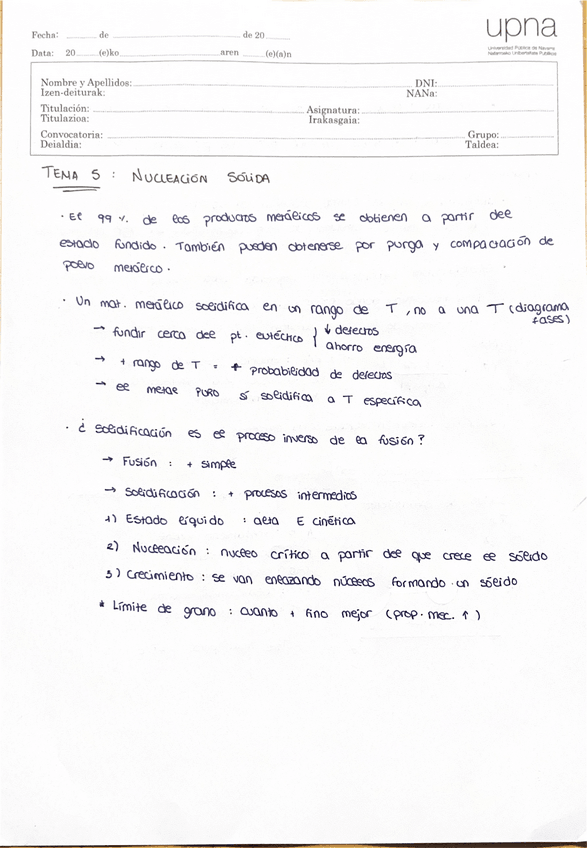 upna
Universidad Pública de Navarra
Nafarroako Unibertsitate Publikoa
Fecha: de de 20
Data: 20 (e)ko aren (e)(a)n
Nombre y Apellidos: DNI:
Izen-deiturak: NANa:
Titulación: Asignatura:
Titulazioa: Irakasgaia:
Convocatoria: Grupo:
Deialdia: Taldea:
TEMA 5 : NUCLEACIÓN SÓLIDA
· El 99 % de los productos metálicos se obtienen a partir del
estado fundido. También pueden obtenerse por purga y compactación de
polvo metálico.
· Un mat. metálico solidifica en un rango de T, no a una T (diagrama
fases)
→ fundir cerca del pt. eutéctico } ↓ defectos
ahorro energía
→ + rango de T = + probabilidad de defectos
→ el metal PURO sí solidifica a T específica
· ¿ solidificación es el proceso inverso de la fusión?
→ Fusión : + simple
→ Solidificación : + procesos intermedios
1) Estado líquido : alta E cinética
2) Nucleación : nucleo crítico a partir del que crece el sólido
3) Crecimiento : se van enlazando núcleos formando un sólido
* Límite de grano : cuanto + fino mejor (prop. mec. ↑)